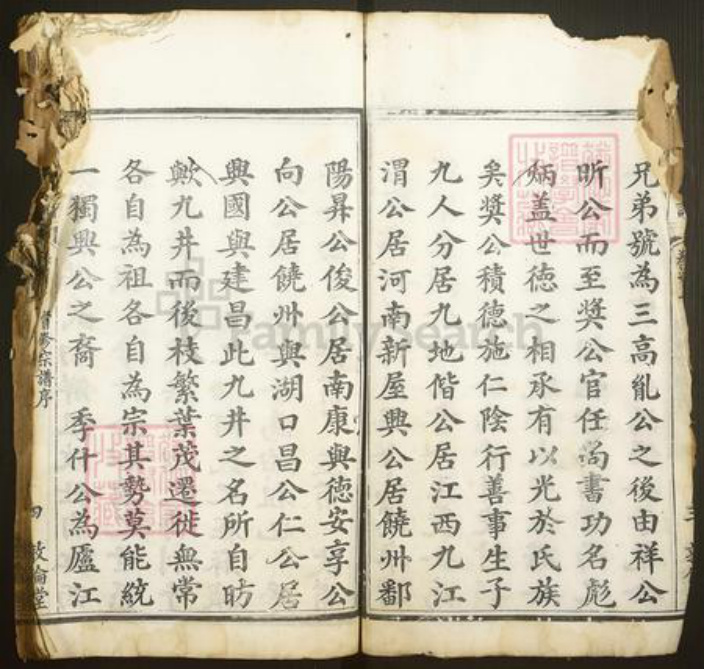 兄弟號為三高胤公之後由祥公
昕公而至奬公官任尚書功名彪
炳盖世徳之相承有以光於氏族
矣奬公積德施仁陰行善事生子
九人分居九地偕公居江西九江
渭公居河南新屋興公居饒州鄱
陽昇公俊公居南康與德安享公
向公居饒州與湖口昌公仁公居
興國與建昌此九井之名所自昉
歟九井而後枝繁葉茂遷徙無常
各自為祖各自為宗其勢莫能統
一獨興公之裔 季什公為廬江
修宗譜序
四 敦倫堂
FamilySearch